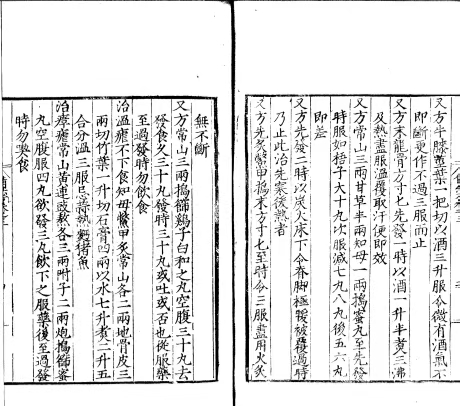 又方牛膝莖葉一把切以酒三升服令微有酒氣不
即斷更作不過三服而止
又方末龍骨方寸匕先發一時以酒一升半煮三沸
及熱盡服溫覆取汗便即效
又方常山三兩甘草半兩知母一兩搗蜜丸至先發
時服如梧子大十丸次服減七丸八丸後五六丸
即差
又方先發二時以炭火床下令脊脚極暖被覆過時
乃止此治先寒後熱者
又方先炙鱉甲搗末方寸匕至時令三服盡用火炙
無不斷
又方常山三兩搗篩雞子白和之丸空腹三十丸去
發食久三十丸發時三十丸或吐或否也從服藥
至過發時勿飲食
治溫瘧不下食知母鱉甲炙常山各二兩地骨皮三
兩切竹葉一升切石膏四兩以水七升煮二升五
合分溫三服忌蒜熱麵豬魚
治瘴瘧常山黃連豉熬各三兩附子二兩炮搗篩蜜
丸空腹服四丸欲發三丸飲下之服藥後至過發
時勿喫食